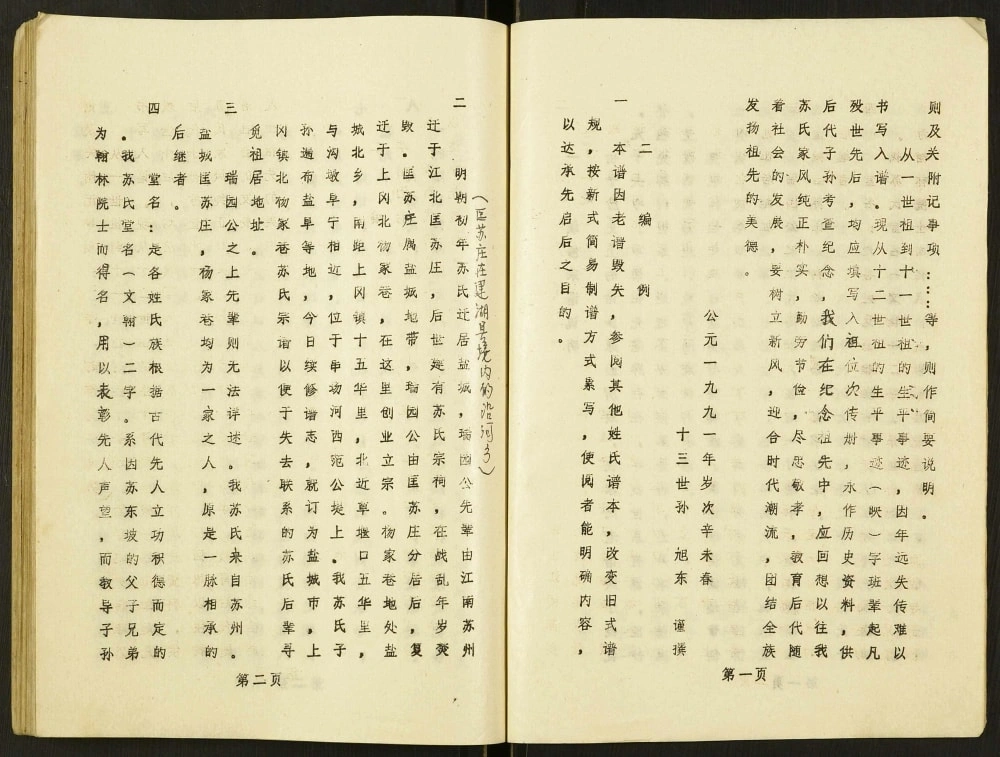 则及关附记事项:……等,则作简要说明。
从一世祖到十一世祖的生平事迹,因年远失传难以
书写入谱。现从十二世祖的生平事迹(映)字班辈起凡
殁世先后,均应填写入祖位次传册,永作历史资料,供
后代子孙考查纪念,我们在纪念祖先中,应回想以往我
苏氏家风纯正朴实,勤劳节俭,尽忠敬孝,教育后代随
着社会的发展,要树立新风,迎合时代潮流,团结全族
发扬祖先的美德。
公元一九九一年岁次辛未春
十三世孙 旭东 谨撰
二 编 例
一 本谱因老谱毁矢,参阅其他姓氏谱本,改变旧式谱
规,按新式简易制谱方式累写,便阅者能明确内容,
以达承先启后之目的。
第一页
(匡苏庄在建湖县境内的沿河了)
二 明朝初年苏氏迁居盐城,瑞园公先辈由江南苏州
迁于江北匡苏庄,后世建有苏氏宗祠,在战乱年岁变
毁。匡苏庄属盐城地带,瑞园公由匡苏庄分居后,复
迁于上冈北杨家巷,在这里创业立宗。杨家巷地处盐
城北乡,南距上冈镇十五华里,北近草堰口五华里,
与沟墩阜宁相近,位于串场河西范公堤上。我苏氏子
孙遍布盐阜等地,今日续修谱志,就订为盐城市,上
冈镇北杨家巷苏氏宗谱以便于失去联系的苏氏后辈寻
觅祖居地址。
三 瑞园公之上先辈则无法详述。我苏氏来自苏州。
盐城匡苏庄,杨家巷均为一家之人,原是一脉相承的
后继者。
四 堂名:是各姓氏族根据古代先人立功积德而定的
。我苏氏堂名(文翰)二字。系因苏东坡的父子兄弟
为翰林院士而得名,用以表彰先人声望,而教导子孙
第二页